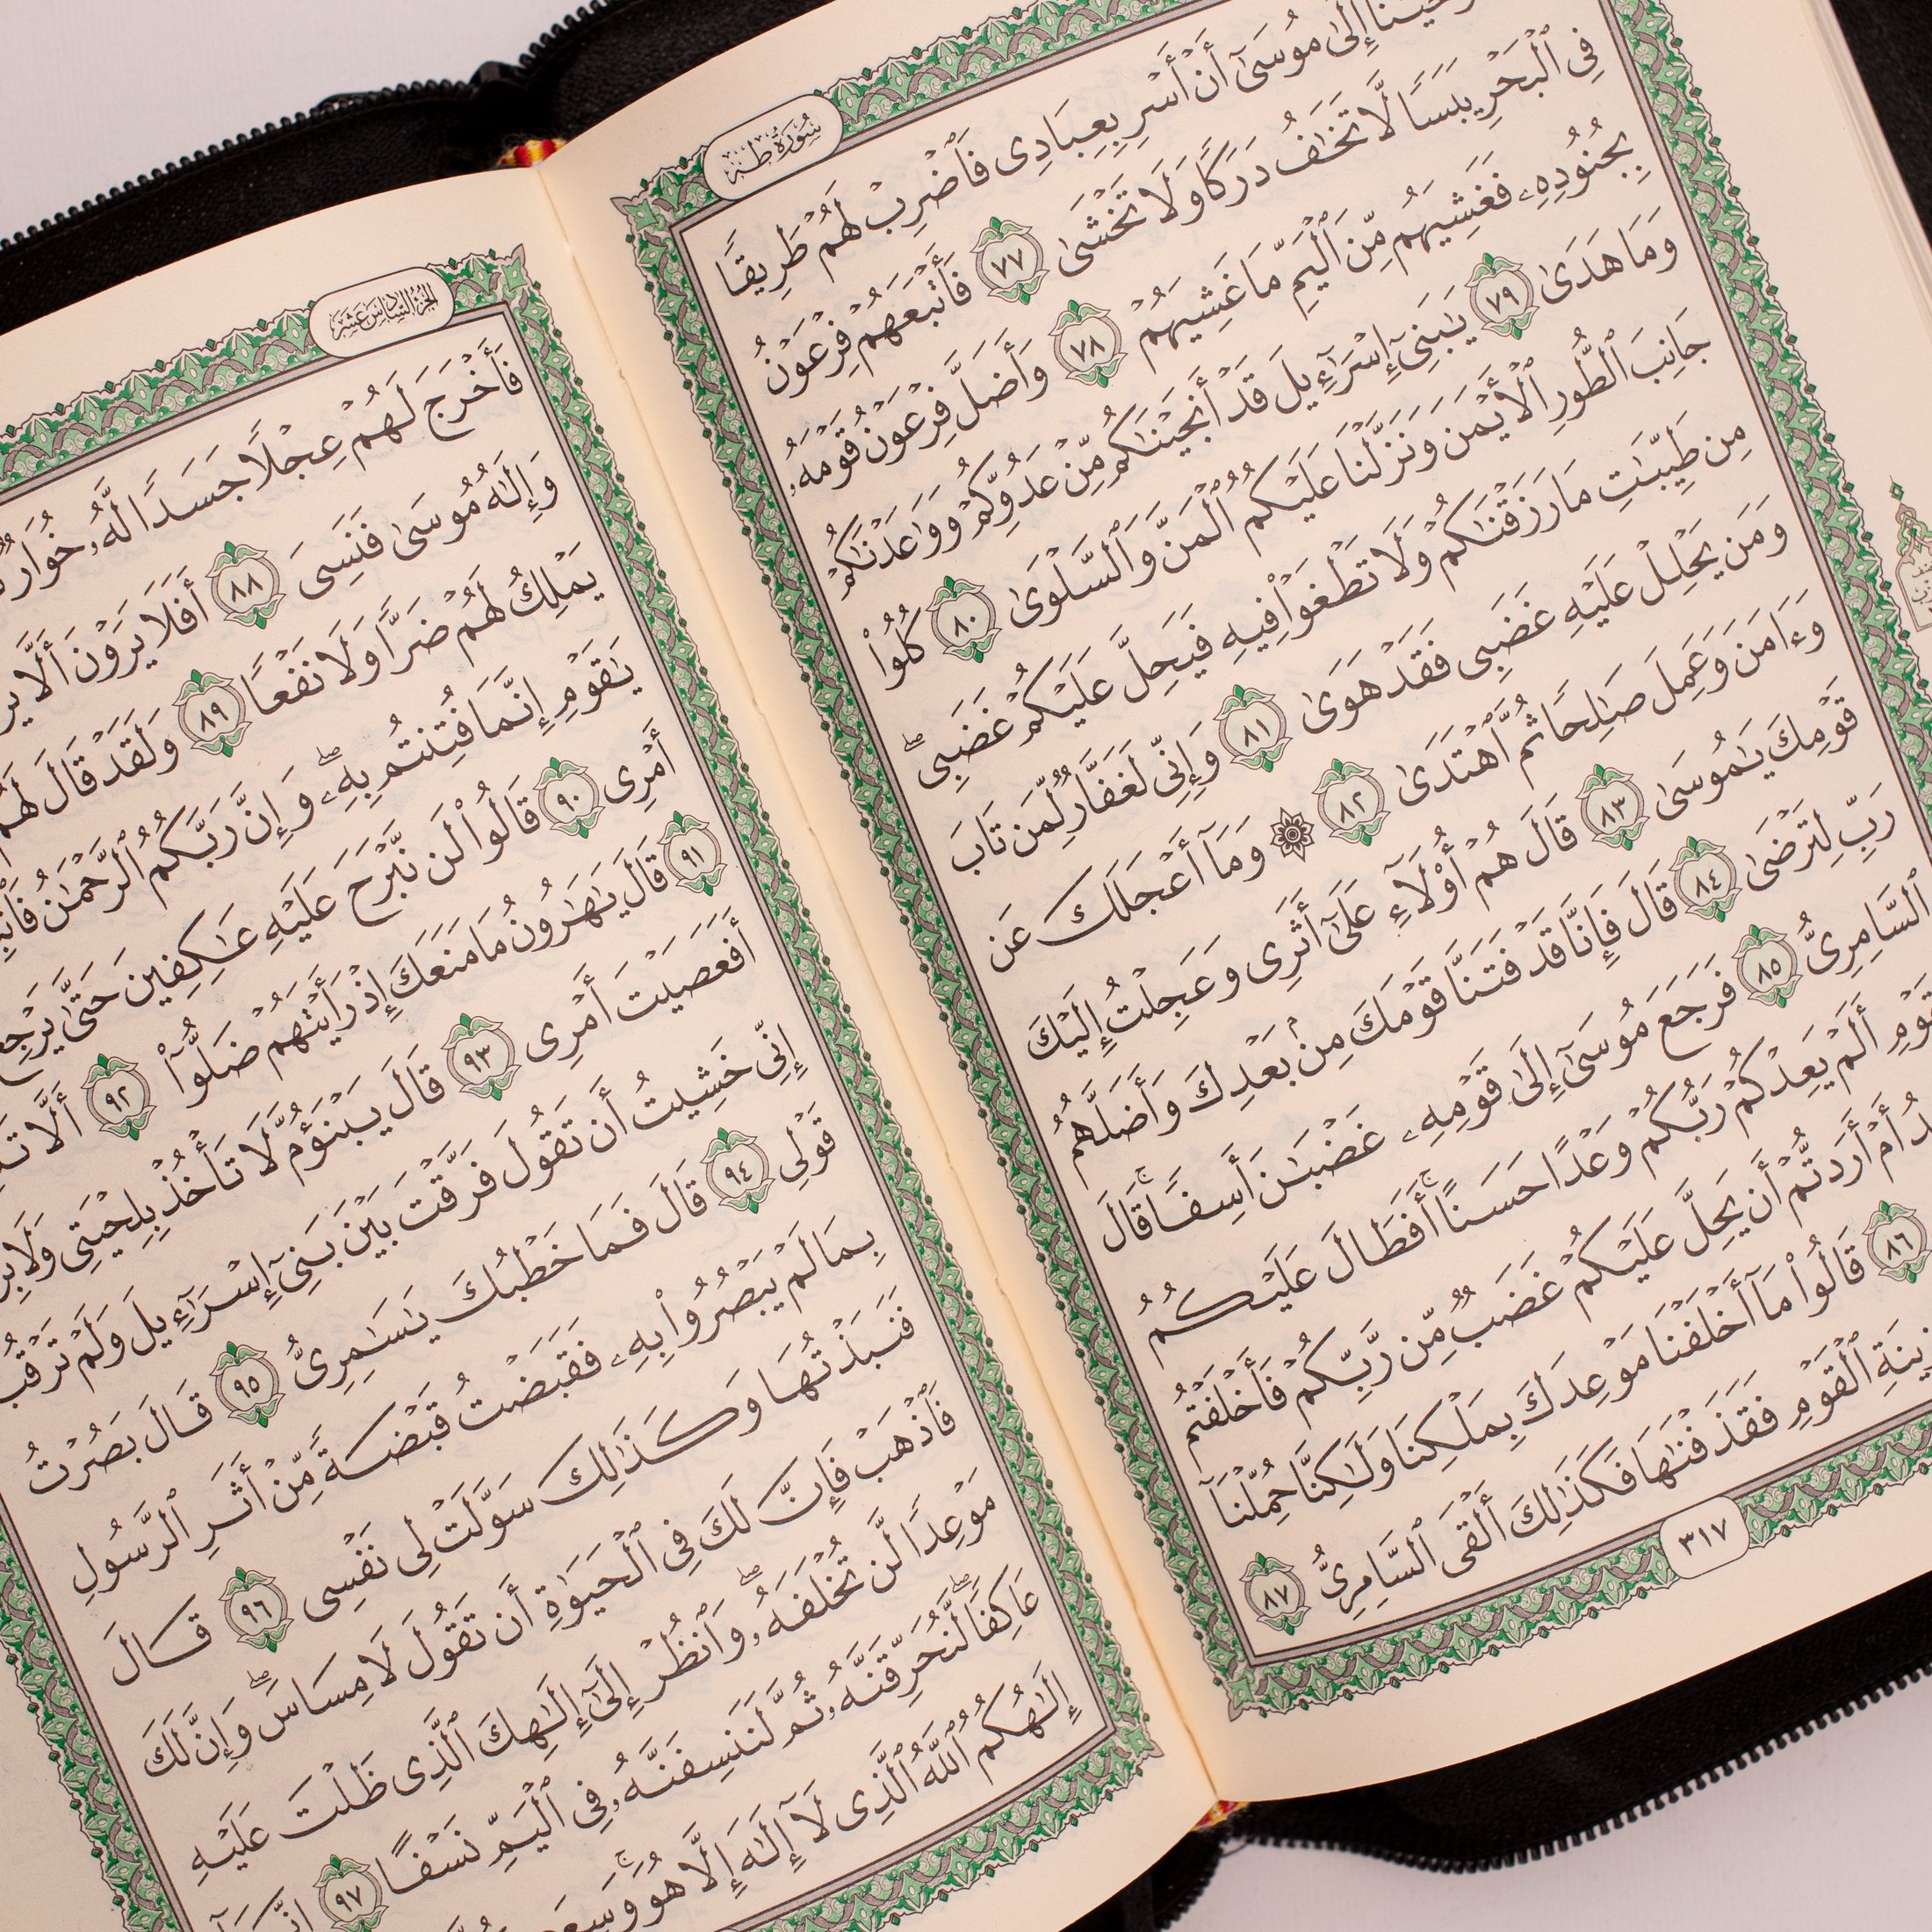 سُورَةُ طه
وْحَيْنَآ إِلَىٰ مُوسَىٰٓ أَنْ أَسْرِ بِعِبَادِى فَٱضْرِبْ لَهُمْ طَرِيقًا
فِى ٱلْبَحْرِ يَبَسًا لَّا تَخَٰفُ دَرَكًا وَلَا تَخْشَىٰ ٧٧ فَأَتْبَعَهُمْ فِرْعَوْنُ
بِجُنُودِهِۦ فَغَشِيَهُم مِّنَ ٱلْيَمِّ مَا غَشِيَهُمْ ٧٨ وَأَضَلَّ فِرْعَوْنُ قَوْمَهُۥ
وَمَا هَدَىٰ ٧٩ يَٰبَنِىٓ إِسْرَٰٓءِيلَ قَدْ أَنجَيْنَٰكُم مِّنْ عَدُوِّكُمْ وَوَٰعَدْنَٰكُمْ
جَانِبَ ٱلطُّورِ ٱلْأَيْمَنَ وَنَزَّلْنَا عَلَيْكُمُ ٱلْمَنَّ وَٱلسَّلْوَىٰ ٨٠ كُلُوا۟
مِن طَيِّبَٰتِ مَا رَزَقْنَٰكُمْ وَلَا تَطْغَوْا۟ فِيهِ فَيَحِلَّ عَلَيْكُمْ غَضَبِى ۖ
وَمَن يَحْلِلْ عَلَيْهِ غَضَبِى فَقَدْ هَوَىٰ ٨١ وَإِنِّى لَغَفَّارٌ لِّمَن تَابَ
وَءَامَنَ وَعَمِلَ صَٰلِحًا ثُمَّ ٱهْتَدَىٰ ٨٢ ۞ وَمَآ أَعْجَلَكَ عَن
قَوْمِكَ يَٰمُوسَىٰ ٨٣ قَالَ هُمْ أُو۟لَآءِ عَلَىٰٓ أَثَرِى وَعَجِلْتُ إِلَيْكَ
رَبِّ لِتَرْضَىٰ ٨٤ قَالَ فَإِنَّا قَدْ فَتَنَّا قَوْمَكَ مِنۢ بَعْدِكَ وَأَضَلَّهُمُ
ٱلسَّامِرِىُّ ٨٥ فَرَجَعَ مُوسَىٰٓ إِلَىٰ قَوْمِهِۦ غَضْبَٰنَ أَسِفًا ۚ قَالَ
أَلَمْ يَعِدْكُمْ رَبُّكُمْ وَعْدًا حَسَنًا ۚ أَفَطَالَ عَلَيْكُمُ
أَمْ أَرَدتُّمْ أَن يَحِلَّ عَلَيْكُمْ غَضَبٌ مِّن رَّبِّكُمْ فَأَخْلَفْتُم
٨٦ قَالُوا۟ مَآ أَخْلَفْنَا مَوْعِدَكَ بِمَلْكِنَا وَلَٰكِنَّا حُمِّلْنَآ
ٱلْقَوْمِ فَقَذَفْنَٰهَا فَكَذَٰلِكَ أَلْقَى ٱلسَّامِرِىُّ ٨٧
٣١٧
الجزء السادس عشر
فَأَخْرَجَ لَهُمْ عِجْلًا جَسَدًا لَّهُۥ خُوَارٌ
وَإِلَٰهُ مُوسَىٰ فَنَسِىَ ٨٨ أَفَلَا يَرَوْنَ أَلَّا
يَمْلِكُ لَهُمْ ضَرًّا وَلَا نَفْعًا ٨٩ وَلَقَدْ قَالَ لَهُمْ
يَٰقَوْمِ إِنَّمَا فُتِنتُم بِهِۦ ۖ وَإِنَّ رَبَّكُمُ ٱلرَّحْمَٰنُ
أَمْرِى ٩٠ قَالُوا۟ لَن نَّبْرَحَ عَلَيْهِ عَٰكِفِينَ حَتَّىٰ يَرْجِعَ
٩١ قَالَ يَٰهَٰرُونُ مَا مَنَعَكَ إِذْ رَأَيْتَهُمْ ضَلُّوٓا۟ ٩٢ أَلَّا
أَفَعَصَيْتَ أَمْرِى ٩٣ قَالَ يَبْنَؤُمَّ لَا تَأْخُذْ بِلِحْيَتِى وَلَا
إِنِّى خَشِيتُ أَن تَقُولَ فَرَّقْتَ بَيْنَ بَنِىٓ إِسْرَٰٓءِيلَ وَلَمْ تَرْقُبْ
قَوْلِى ٩٤ قَالَ فَمَا خَطْبُكَ يَٰسَٰمِرِىُّ ٩٥ قَالَ بَصُرْتُ
بِمَا لَمْ يَبْصُرُوا۟ بِهِۦ فَقَبَضْتُ قَبْضَةً مِّنْ أَثَرِ ٱلرَّسُولِ
فَنَبَذْتُهَا وَكَذَٰلِكَ سَوَّلَتْ لِى نَفْسِى ٩٦ قَالَ
فَٱذْهَبْ فَإِنَّ لَكَ فِى ٱلْحَيَوٰةِ أَن تَقُولَ لَا مِسَاسَ ۖ وَإِنَّ لَكَ
مَوْعِدًا لَّن تُخْلَفَهُۥ ۖ وَٱنظُرْ إِلَىٰٓ إِلَٰهِكَ ٱلَّذِى ظَلْتَ عَلَيْهِ
عَاكِفًا ۖ لَّنُحَرِّقَنَّهُۥ ثُمَّ لَنَنسِفَنَّهُۥ فِى ٱلْيَمِّ نَسْفًا ٩٧
إِلَٰهُكُمُ ٱللَّهُ ٱلَّذِى لَآ إِلَٰهَ إِلَّا هُوَ ۚ